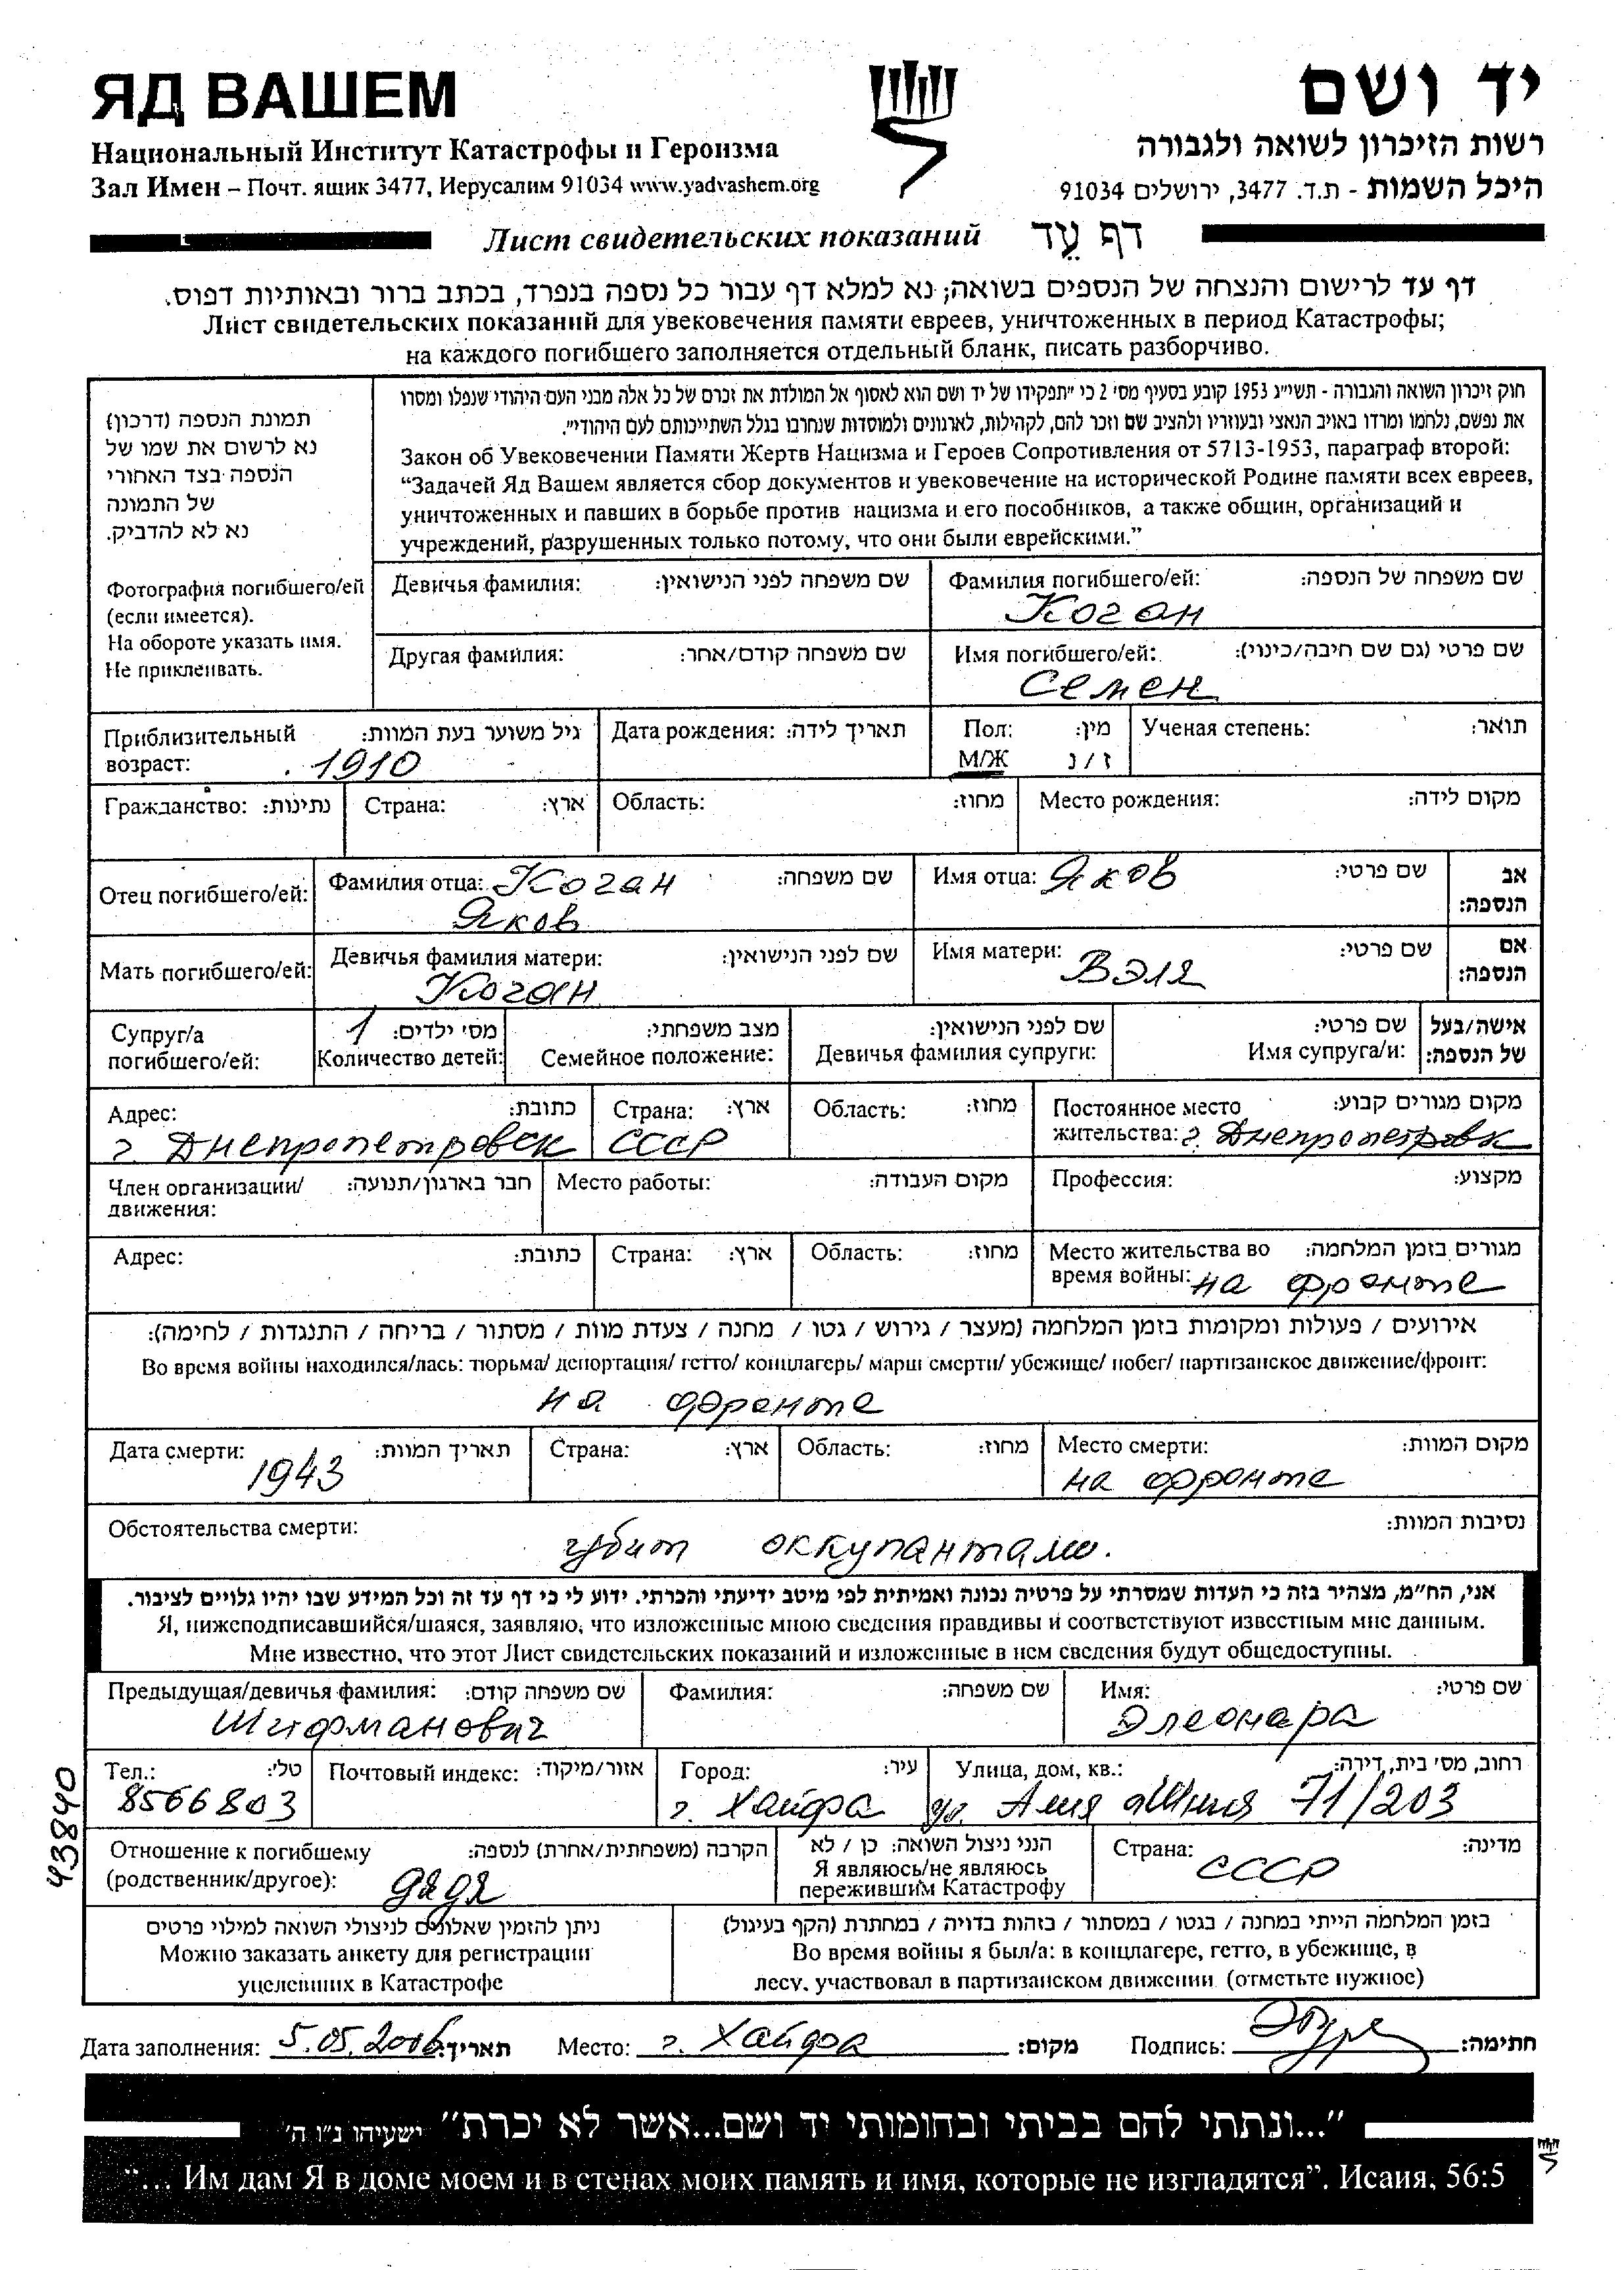 ЯД ВАШЕМ
יד ושם
Национальный Институт Катастрофы и Героизма
רשות הזיכרון לשואה ולגבורה
Зал Имен – Почт. ящик 3477, Иерусалим 91034 www.yadvashem.org
היכל השמות - ת.ד. 3477, ירושלים 91034
Лист свидетельских показаний דף עֵד
דף עד לרישום והנצחה של הנספים בשואה; נא למלא דף עבור כל נספה בנפרד, בכתב ברור ובאותיות דפוס.
Лист свидетельских показаний для увековечения памяти евреев, уничтоженных в период Катастрофы;
на каждого погибшего заполняется отдельный бланк, писать разборчиво.
תמונת הנספה (דרכון)
נא לרשום את שמו של
הנספה בצד האחורי
של התמונה
נא לא להדביק.
Фотография погибшего/ей
(если имеется).
На обороте указать имя.
Не приклеивать.
חוק זיכרון השואה והגבורה - תשי״ג 1953 קובע בסעיף מס׳ 2 כי ״תפקידו של יד ושם הוא לאסוף אל המולדת את זכרם של כל אלה מבני העם היהודי שנפלו ומסרו
את נפשם, נלחמו ומרדו באויב הנאצי ובעוזריו ולהציב שם וזכר להם, לקהילות, לארגונים ולמוסדות שנחרבו בגלל השתייכותם לעם היהודי״.
Закон об Увековечении Памяти Жертв Нацизма и Героев Сопротивления от 5713-1953, параграф второй:
“Задачей Яд Вашем является сбор документов и увековечение на исторической Родине памяти всех евреев,
уничтоженных и павших в борьбе против нацизма и его пособников, а также общин, организаций и
учреждений, разрушенных только потому, что они были еврейскими.”
Девичья фамилия: שם משפחה לפני הנישואין:
Фамилия погибшего/ей: שם משפחה של הנספה:
Коган
Другая фамилия: שם משפחה קודם/אחר:
Имя погибшего/ей: שם פרטי (גם שם חיבה/כינוי):
Семен
Приблизительный возраст: גיל משוער בעת המוות:
1910
Дата рождения: תאריך לידה:
Пол: מין:
М/Ж ז / נ
Ученая степень: תואר:
Гражданство: נתינות:
Страна: ארץ:
Область: מחוז:
Место рождения: מקום לידה:
Отец погибшего/ей:
Фамилия отца: Коган שם משפחה:
Яков
Имя отца: Яков שם פרטי:
אב הנספה:
Мать погибшего/ей:
Девичья фамилия матери: שם לפני הנישואין:
Коган
Имя матери: Вэля שם פרטי:
אם הנספה:
Супруг/а погибшего/ей:
1 מס׳ ילדים:
Количество детей:
מצב משפחתי:
Семейное положение:
שם לפני הנישואין:
Девичья фамилия супруги:
שם פרטי:
Имя супруга/и:
אישה/בעל של הנספה:
Адрес: כתובת:
г. Днепропетровск
Страна: ארץ:
СССР
Область: מחוז:
Постоянное место מקום מגורים קבוע:
жительства: г. Днепропетровк
Член организации/ движения: חבר בארגון/תנועה:
Место работы: מקום העבודה:
Профессия: מקצוע:
Адрес: כתובת:
Страна: ארץ:
Область: מחוז:
Место жительства во מגורים בזמן המלחמה:
время войны: на фронте
אירועים / פעולות ומקומות בזמן המלחמה (מעצר / גירוש / גטו / מחנה / צעדת מוות / מסתור / בריחה / התנגדות / לחימה):
Во время войны находился/лась: тюрьма/ депортация/ гетто/ концлагерь/ марш смерти/ убежище/ побег/ партизанское движение/фронт:
на фронте
Дата смерти: תאריך המוות:
1943
Страна: ארץ:
Область: מחוז:
Место смерти: מקום המוות:
на фронте
Обстоятельства смерти: נסיבות המוות:
убит оккупантами.
אני, הח״מ, מצהיר בזה כי העדות שמסרתי על פרטיה נכונה ואמיתית לפי מיטב ידיעתי והכרתי. ידוע לי כי דף עד זה וכל המידע שבו יהיו גלויים לציבור.
Я, нижеподписавшийся/шаяся, заявляю, что изложенные мною сведения правдивы и соответствуют известным мне данным.
Мне известно, что этот Лист свидетельских показаний и изложенные в нем сведения будут общедоступны.
Предыдущая/девичья фамилия: שם משפחה קודם:
Шифманович
Фамилия: שם משפחה:
Имя: שם פרטי:
Элеонара
Тел.: טל׳:
8566803
Почтовый индекс: אזור/מיקוד:
Город: עיר:
г. Хайфа
Улица, дом, кв.: רחוב, מס׳ בית, דירה:
ул. Алия 71/203
43840
Отношение к погибшему הקרבה (משפחתית/אחרת) לנספה:
(родственник/другое): дядя
הנני ניצול השואה: כן / לא
Я являюсь/не являюсь
пережившим Катастрофу
Страна: מדינה:
СССР
ניתן להזמין שאלונים לניצולי השואה למילוי פרטים
Можно заказать анкету для регистрации
уцелевших в Катастрофе
בזמן המלחמה הייתי במחנה / בגטו / במסתור / בזהות בדויה / במחתרת (הקף בעיגול)
Во время войны я был/а: в концлагере, гетто, в убежище, в
лесу, участвовал в партизанском движении (отметьте нужное)
Дата заполнения: 5.05.2006 תאריך: Место: г. Хайфа מקום: Подпись: חתימה:
״...ונתתי להם בביתי ובחומותי יד ושם...אשר לא יכרת״ ישעיהו נ״ו ה׳
“... Им дам Я в доме моем и в стенах моих память и имя, которые не изгладятся”. Исаия, 56:5